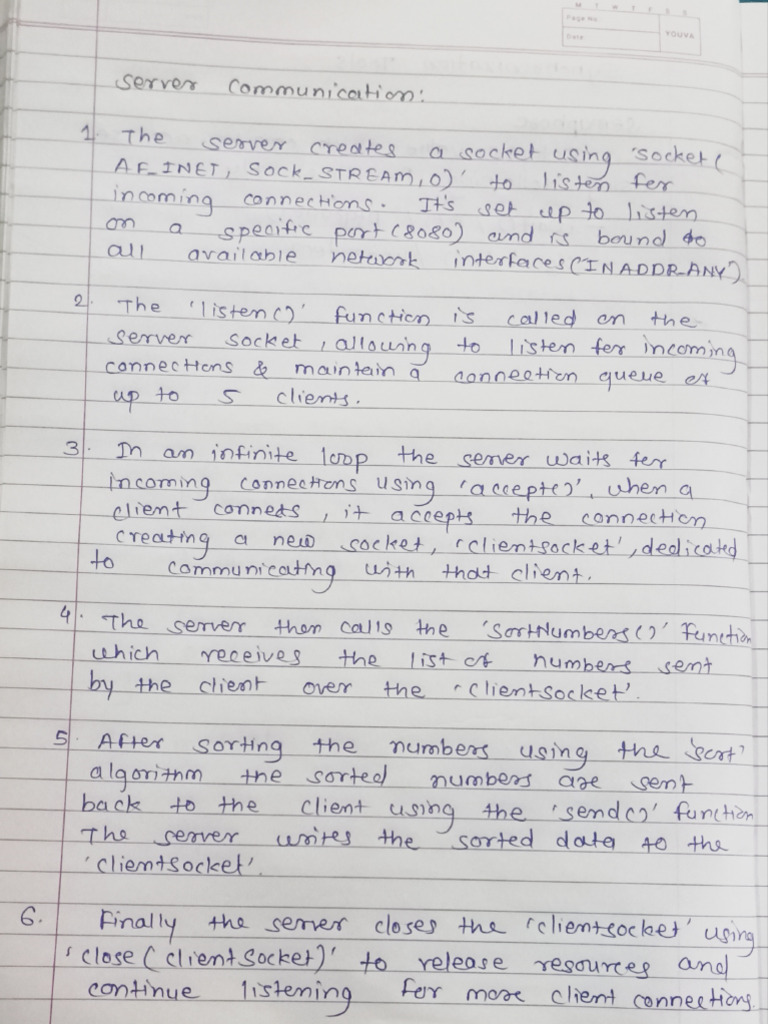 Page No.
Date
YOUVA
Server Communication:
1. The server creates a socket using 'socket(
AF_INET, SOCK_STREAM, 0)' to listen for
incoming connections. It's set up to listen
on a specific port (8080) and is bound to
all available network interfaces (INADDR_ANY).
2. The 'listen()' function is called on the
server socket, allowing to listen for incoming
connections & maintain a connection queue of
up to 5 clients.
3. In an infinite loop the server waits for
incoming connections using 'accept()', when a
client connects, it accepts the connection
creating a new socket, 'clientsocket', dedicated
to communicating with that client.
4. The server then calls the 'SortNumbers()' function
which receives the list of numbers sent
by the client over the 'clientsocket'.
5. After sorting the numbers using the 'sort'
algorithm the sorted numbers are sent
back to the client using the 'send()' function
The server writes the sorted data to the
'clientsocket'.
6. Finally the server closes the 'clientsocket' using
'close(clientSocket)' to release resources and
continue listening for more client connections.